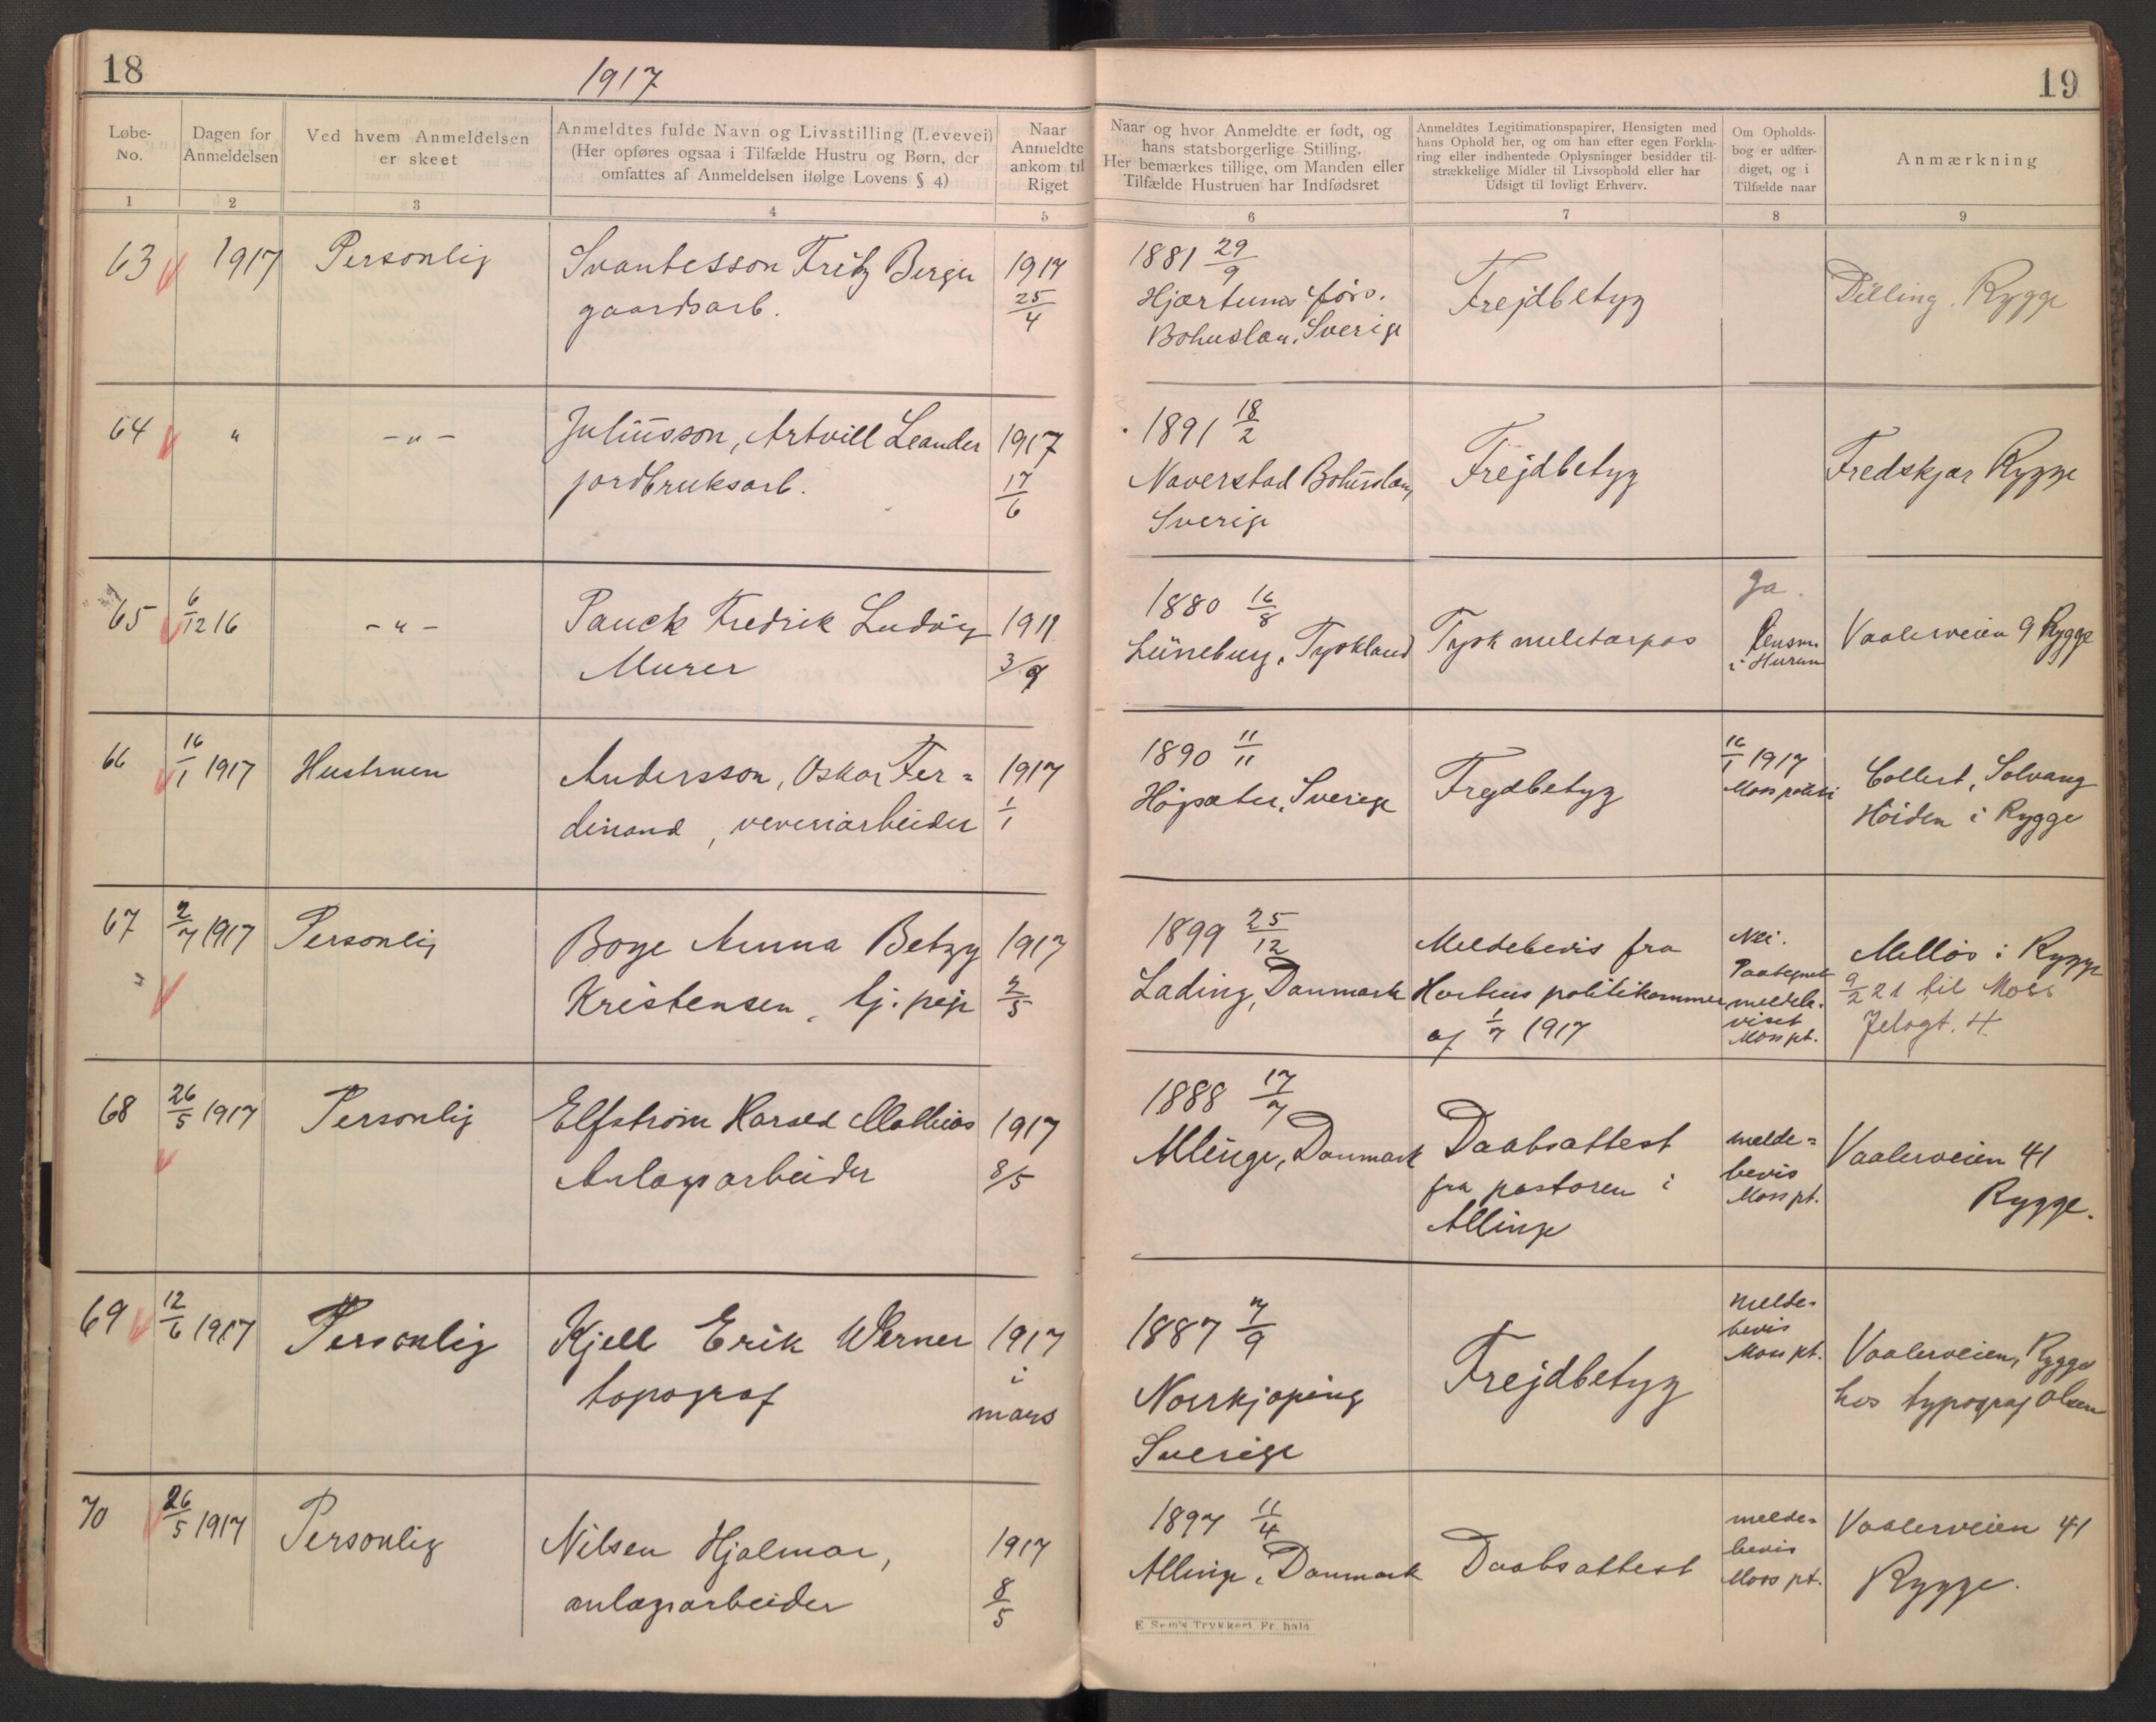 18
1917
Løbe-
No.
Dagen for
Anmeldelsen
Ved hvem Anmeldelsen
er skeet
Anmeldtes fulde Navn og Livsstilling (Levevei)
(Her opføres ogsaa i Tilfælde Hustru og Børn, der
omfattes af Anmeldelsen ifølge Lovens § 4)
Naar
Anmeldte
ankom til
Riget
1 2 3 4 5
63 1917 Personlig
Svantesson Fritz Berger
gaardsarb.
1917
25/4
64 " -"-
Juliusson, Artvill Leander
jordbruksarb.
1917
17/6
65 6/12 16 -"-
Panck Fredrik Ludvig
Murer
1911
3/9
66 16/1 1917 Hustruen
Andersson, Oskar Fer=
dinand, veveriarbeider
1917
1/1
67 2/7 1917 Personlig
Boye Anna Betzy
Kristensen, tj. pige
1917
2/5
68 26/5 1917 Personlig
Elfstrøm Harald Mathias
Anlægsarbeider
1917
8/5
69 12/6 1917 Personlig
Kjell Erik Werner
topograf
1917
i
mars
70 26/5 1917 Personlig
Nilsen Hjalmar,
anlægsarbeider
1917
8/5
19
Naar og hvor Anmeldte er født, og
hans statsborgerlige Stilling.
Her bemærkes tillige, om Manden eller
Tilfælde Hustruen har Indfødsret
Anmeldtes Legitimationspapirer, Hensigten med
hans Ophold her, og om han efter egen Forkla-
ring eller indhentede Oplysninger besidder til-
strækkelige Midler til Livsophold eller har
Udsigt til lovligt Erhverv.
Om Opholds-
bog er udfær-
diget, og i
Tilfælde naar
Anmærkning
6 7 8 9
1881 29/9
Hjærtums förs.
Bohuslän, Sverige
Frejdbetyg
Dilling. Rygge
1891 18/2
Naverstad Bohuslän,
Sverige
Frejdbetyg
Fredskjær Rygge
1880 16/8
Lüneburg, Tyskland
Tysk militærpas
Ja.
Lensm.
i Hurum
Vaalerveien 9 Rygge
1890 11/11
Högsäter, Sverige
Frejdbetyg
16/1 1917
Moss politi
Collert, Solvang
Høiden i Rygge
1899 25/12
Lading, Danmark
Meldebevis fra
Hortens politikammer
af 1/7 1917
Nei.
Paategnet
meldebe-
viset
Moss pt.
Melløs i Rygge
9/2 21 til Moss
Jeløgt. 4
1888 17/7
Allinge, Danmark
Daabsattest
fra pastoren i
Allinge
melde=
bevis
Moss pt.
Vaalerveien 41
Rygge.
1887 7/9
Norrkjøping
Sverige
Frejdbetyg
melde-
bevis
Moss pt.
Vaalerveien, Rygge
hos typograf Olsen
1897 11/4
Allinge, Danmark
Daabsattest
melde-
bevis
Moss pt.
Vaalerveien 41
Rygge.
E. Sem's Trykkeri Fr.hald